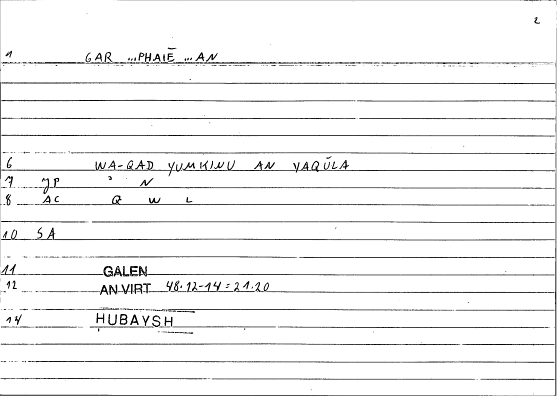 2
1 GAR ...PHAIĒ ...AN
6 WA-QAD YUMKINU AN YAQŪLA
7 JP ᵓ N
8 AC Q W L
10 SA
11 GALEN
12 AN VIRT 48.12-14 = 21.20
14 HUBAYSH